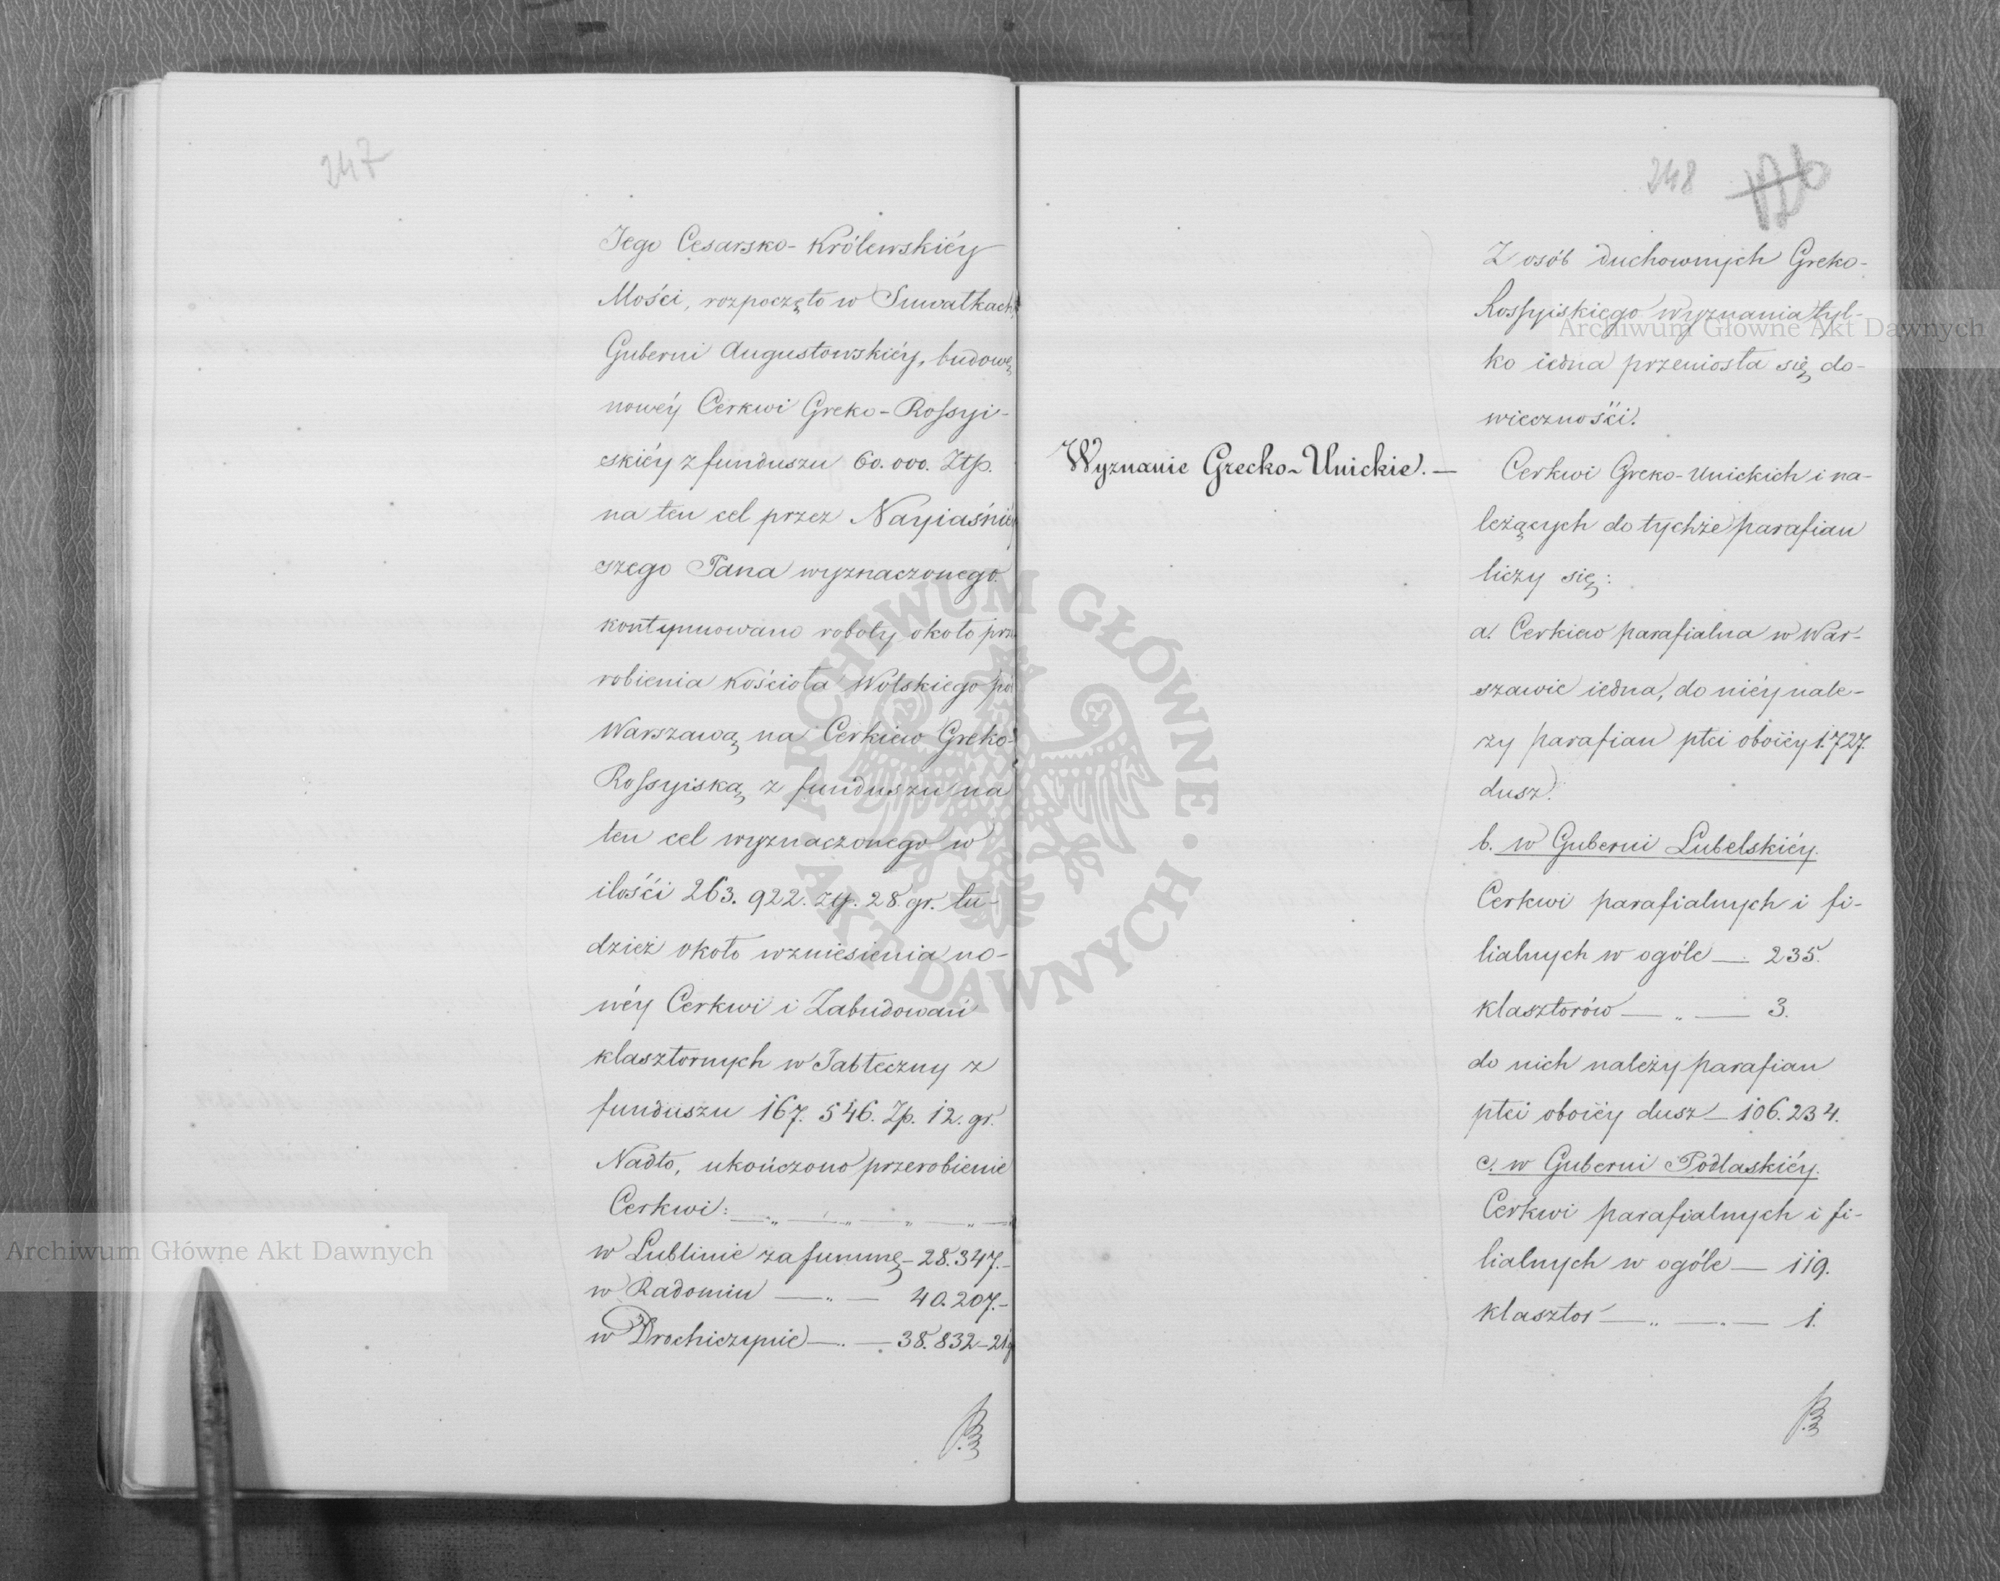 247
Jego Cesarsko-Królewskiéy
Mości, rozpoczęto w Suwałkach,
Guberni Augustowskiéy, budowę
nowéy Cerkwi Greko-Rossyi-
skiéy z funduszu 60.000. Złp.
na ten cel przez Nayiaśniey
szego Pana wyznaczonego
kontynuowano roboty około prze
robienia Kościoła Wolskiego pod
Warszawą na Cerkiew Greko-
Rossyiską z funduszu na
ten cel wyznaczonego w
ilości 263.922. zp. 28. gr. tu-
dzież około wzniesienia no-
wéy Cerkwi i Zabudowań
klasztornych w Jabłeczny z
funduszu 167.546. Zp. 12. gr.
Nadto, ukończono przerobienie
Cerkwi:
w Lublinie za summę – 28.347.–
w Radomiu — „ — 40.207.–
w Drochiczynie — „ — 38.832–21
248 126
Z osób duchownych Greko-
Rossyiskiego wyznania tyl-
ko iedna przeniosła się do-
wieczności.
Wyznanie Grecko-Unickie. —
Cerkwi Greko-Unickich i na-
leżących do tychże parafian
liczy się:
a. Cerkiew parafialna w War-
szawie iedna, do niéy nale-
ży parafian płci oboiéy 1.727.
dusz.
b. w Guberni Lubelskiéy.
Cerkwi parafialnych i fi-
lialnych w ogóle — 235.
klasztorów — „ — 3.
do nich należy parafian
płci oboiéy dusz — 106.234.
c. w Guberni Podlaskiéy.
Cerkwi parafialnych i fi-
lialnych w ogóle — 119.
klasztor — „ — „ — 1.
Archiwum Główne Akt Dawnych
Archiwum Główne Akt Dawnych
ARCHIWUM GŁÓWNE · AKT DAWNYCH ·